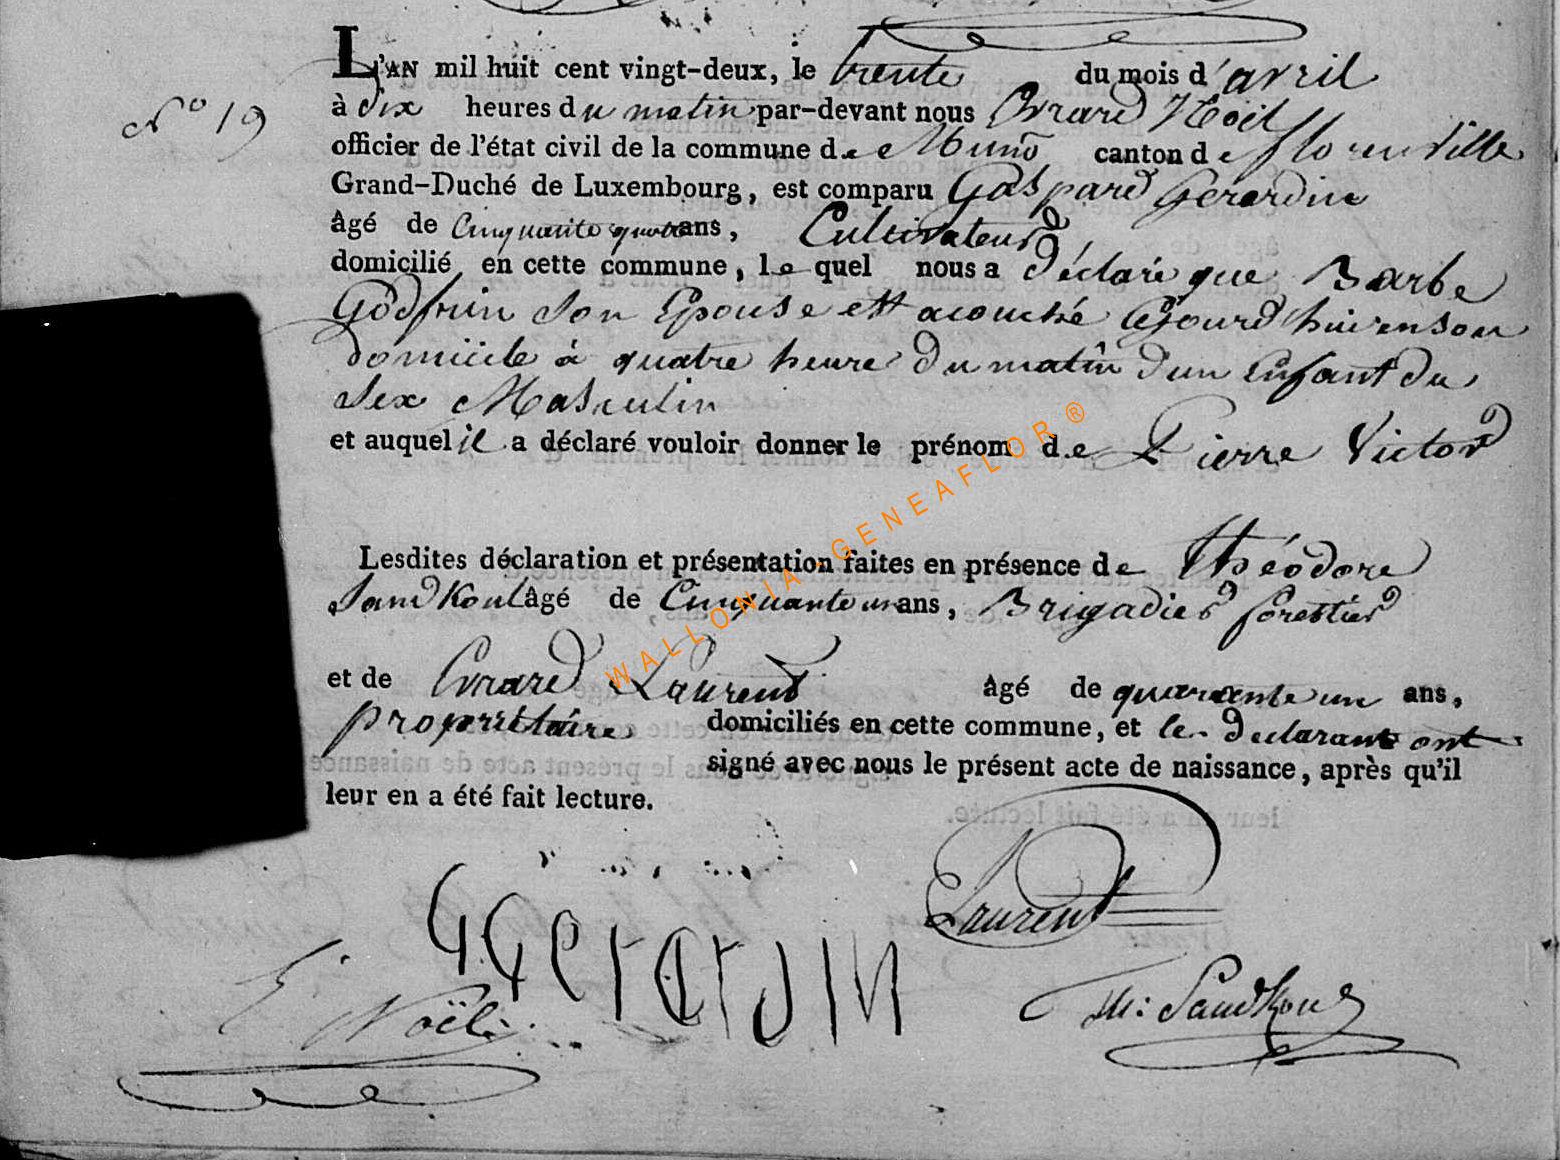 L'AN mil huit cent vingt-deux, le trente du mois d'avril
N° 19
à dix heures du matin par-devant nous Evrard Noël
officier de l'état civil de la commune de Muno canton de florenville
Grand-Duché de Luxembourg, est comparu Gaspard Gerardin
âgé de Cinquante quatre ans, Cultivateur
domicilié en cette commune, lequel nous a déclaré que Barbe
Godfrin Son Epouse est acouché Cejourd'hui en son
domicile à quatre heure du matin d'un Enfant du
Sex Masculin
et auquel il a déclaré vouloir donner le prénom de Pierre Victor
Lesdites déclaration et présentation faites en présence de Théodore
Sandkoul âgé de Cinquante un ans, Brigadier forestier
et de Evrard Laurent âgé de quarante un ans,
propriétaire domiciliés en cette commune, et le declarant ont
signé avec nous le présent acte de naissance, après qu'il
leur en a été fait lecture.
Laurent
G Gerardin
E. Noël
Th: Sandkoul
WALLONIA - GENEAFLOR ®